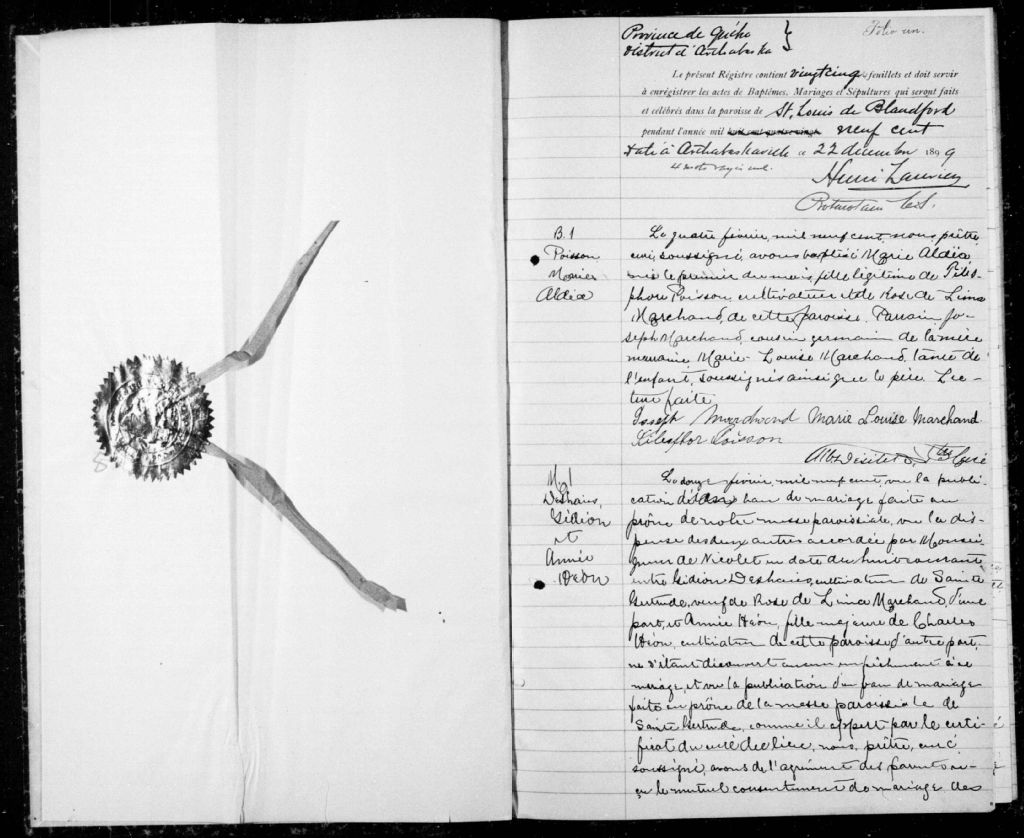 Province de Québec
District d'Arthabaska
Folio un.
Le présent Régistre contient vingt cinq feuillets et doit servir
à enrégistrer les actes de Baptêmes, Mariages et Sépultures qui seront faits
et célébrés dans la paroisse de St. Louis de Blandford
pendant l'année mil huit cent quatre-vingt neuf cent
Daté à Arthabaskaville ce 22 décembre 1899
4 mots rayés nuls.
Henri
C.S.
B. 1
Poisson
Marie
Aldéa
Le quatre février, mil neuf cent, nous prêtre
curé, soussigné, avons baptisé Marie Aldéa
née le premier du mois, fille légitime de Téles-
phore Poisson, cultivateur et de Rose de Lima
Marchand, de cette paroisse. Parrain Jo-
seph Marchand, cousin germain de la mère
marraine Marie-Louise Marchand, tante de
l'enfant, soussignés ainsi que le père. Lec-
ture faite.
Joseph Marchand Marie Louise Marchand
Poisson
Alb. Désilets, Ptre Curé
M. 1
Deshaies,
Gédéon
et
Annie
Héon
Le douze février, mil neuf cent, vu la publi-
cation d'un ban de mariage faite au
prône de notre messe paroissiale, vu la dis-
pense des deux autres accordée par Monsei-
gneur de Nicolet en date du huit courant,
entre Gédéon Deshaies, cultivateur de Sainte
Gertrude, veuf de Rose de Lima Marchand, d'une
part, et Annie Héon, fille majeure de Charles
Héon, cultivateur de cette paroisse, d'autre part,
ne s'étant découvert aucun empêchement à ce
mariage, et vu la publication d'un ban de mariage
faite au prône de la messe paroissiale de
Sainte Gertrude, comme il appert par le certi-
ficat du curé du lieu, nous, prêtre, curé
soussigné, avons de l'agrément des parents re-
çu le mutuel consentement de mariage des